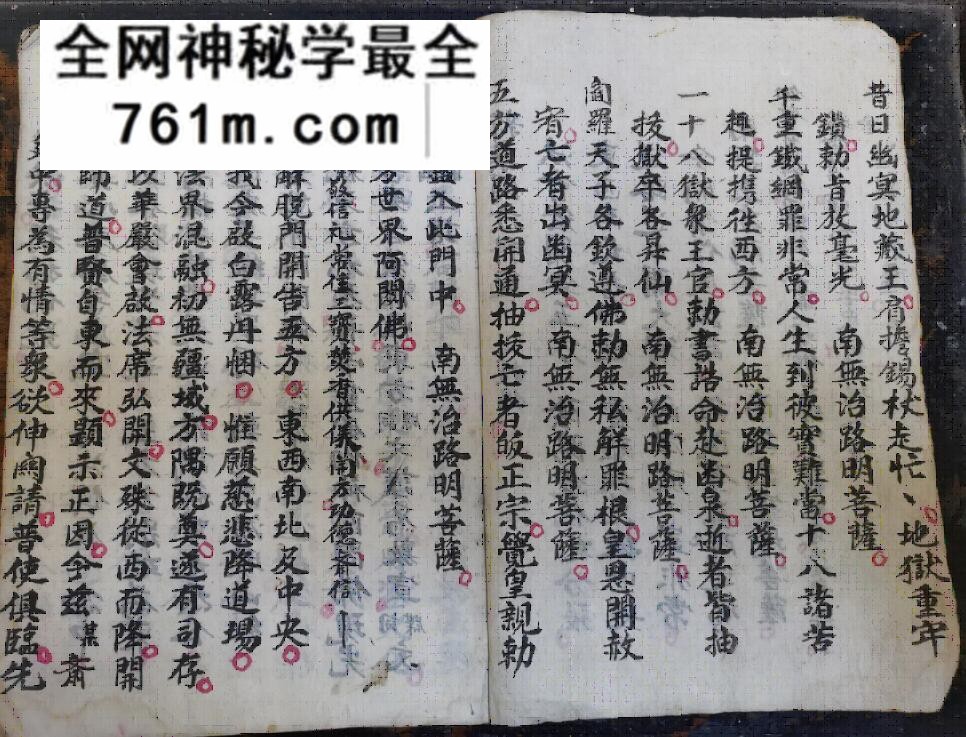 全网神秘学最全
761m.com
昔日幽冥地藏王肩擔錫杖走忙丶地獄重牢
鎖勅旨放毫光 南無治路明菩薩
千重鐵網罪非常人生到彼實難當十八諸苦
趣提攜徃西方 南無治路明菩薩
一十八獄衆王官勅書誥命赴幽泉逝者皆抽
㧞獄卒各昇仙 南無治明路菩薩
閻羅天子各欽遵佛勅無私解罪根皇恩開赦
宥亡者出幽冥 南無治路明菩薩
五方道路悉開通抽㧞亡者皈正宗覺皇親勅
入此門中 南無治路明菩薩
世界阿閦佛
信礼常住三寳 有供儀南方功德
解脫門開告五方 東西南北及中央
我今啟白露丹悃 惟願慈悲降道場
法界混融初無疆域方隅既奠遂有司存
以華嚴會啟法席弘開文殊從西而降開
師道普賢自東而來顯示正因今兹 某 齋
中專為有情等衆欲伸関請普使俱臨先